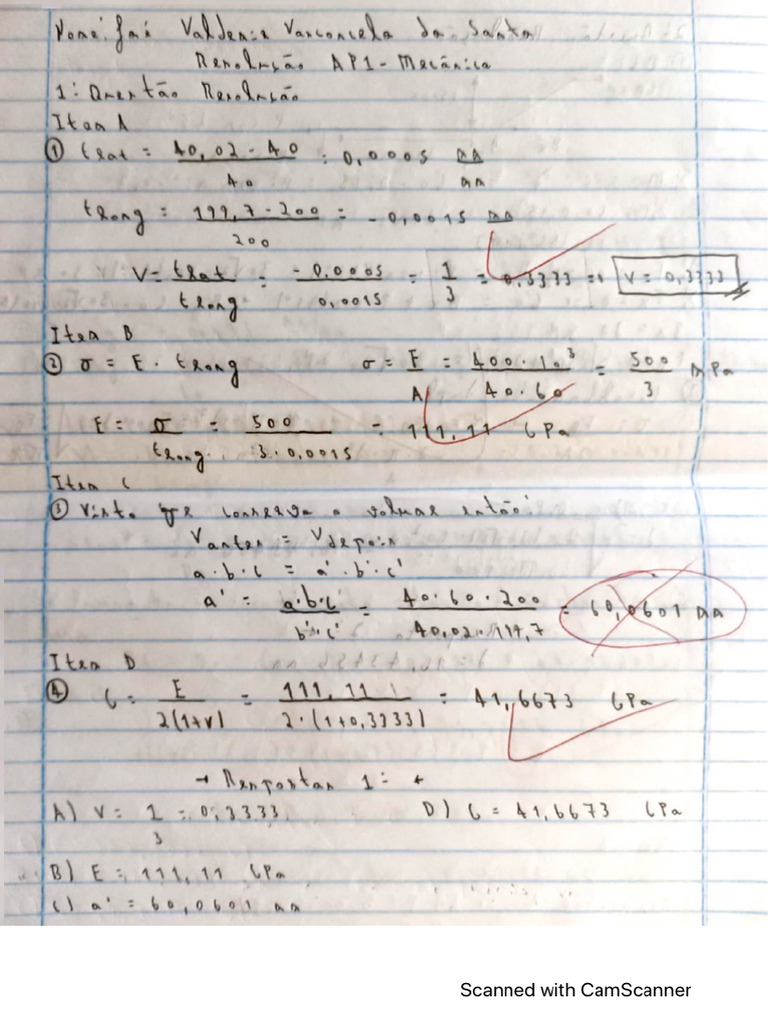 Nome: José Valdenir Vasconcelo do Santos
Resolução AP1 - Mecânica
1: Questão Resolução
Item A
① εlat = 40,02 - 40 / 40 = 0,0005 mm/mm
εlong = 199,7 - 200 / 200 = -0,0015 mm
V = εlat / εlong = -0,0005 / 0,0015 = 1/3 = 0,3333 => V = 0,3333
Item B
② σ = E · εlong σ = F/A = 400·10³ / 40·60 = 500/3 MPa
E = σ / εlong = 500 / 3·0,0015 = 111,11 GPa
Item C
③ Visto que conserva o volume então:
Vantes = Vdepois
a·b·c = a'·b'·c'
a' = a·b·c / b'·c' = 40·60·200 / 40,02·199,7 = 60,0601 mm
Item D
④ G = E / 2(1+v) = 111,11 / 2·(1+0,3333) = 41,6673 GPa
→ Respostas 1: ←
A) V = 1/3 = 0,3333 D) G = 41,6673 GPa
B) E = 111,11 GPa
C) a' = 60,0601 mm
Scanned with CamScanner